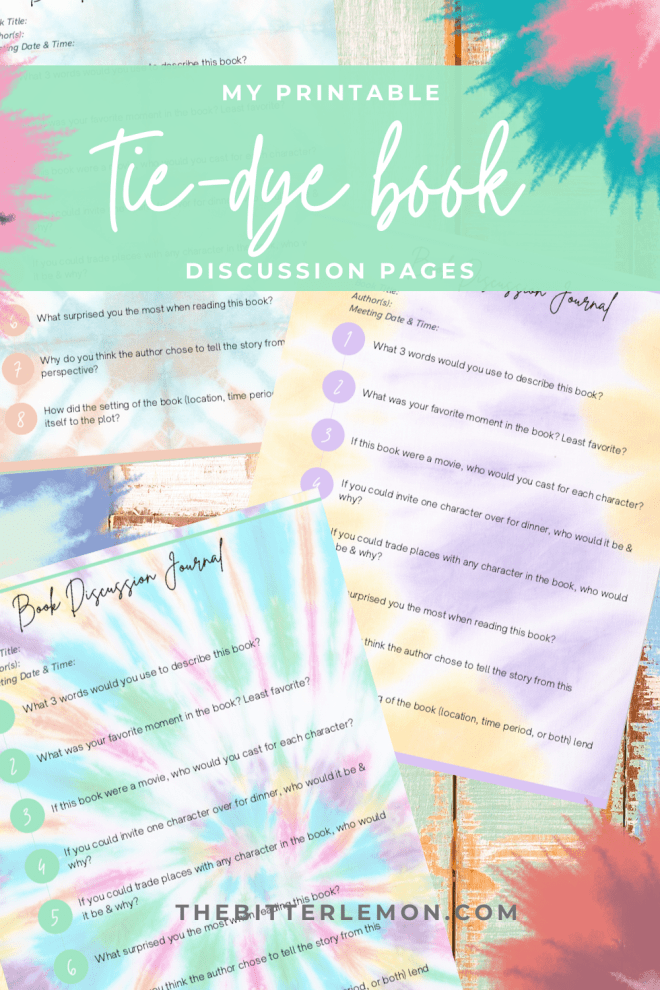 k Title:
hor(s):
ting Date & Time:
describe this book?
MY PRINTABLE
tie-dye book
DISCUSSION PAGES
What surprised you the most when reading this book?
7
Why do you think the author chose to tell the story from
perspective?
8
How did the setting of the book (location, time perio
itself to the plot?
Journal
Author(s):
Meeting Date & Time:
1
What 3 words would you use to describe this book?
2
What was your favorite moment in the book? Least favorite?
3
If this book were a movie, who would you cast for each character?
4
If you could invite one character over for dinner, who would it be &
why?
If you could trade places with any character in the book, who would
be & why?
urprised you the most when reading this book?
think the author chose to tell the story from this
g of the book (location, time period, or both) lend
Book Discussion Journal
Title:
or(s):
ting Date & Time:
What 3 words would you use to describe this book?
2
What was your favorite moment in the book? Least favorite?
3
If this book were a movie, who would you cast for each character?
4
If you could invite one character over for dinner, who would it be &
why?
5
If you could trade places with any character in the book, who would
it be & why?
THEBITTERLEMON.COM
6
What surprised you the most when reading this book?
you think the author chose to tell the story from this
period, or both) lend